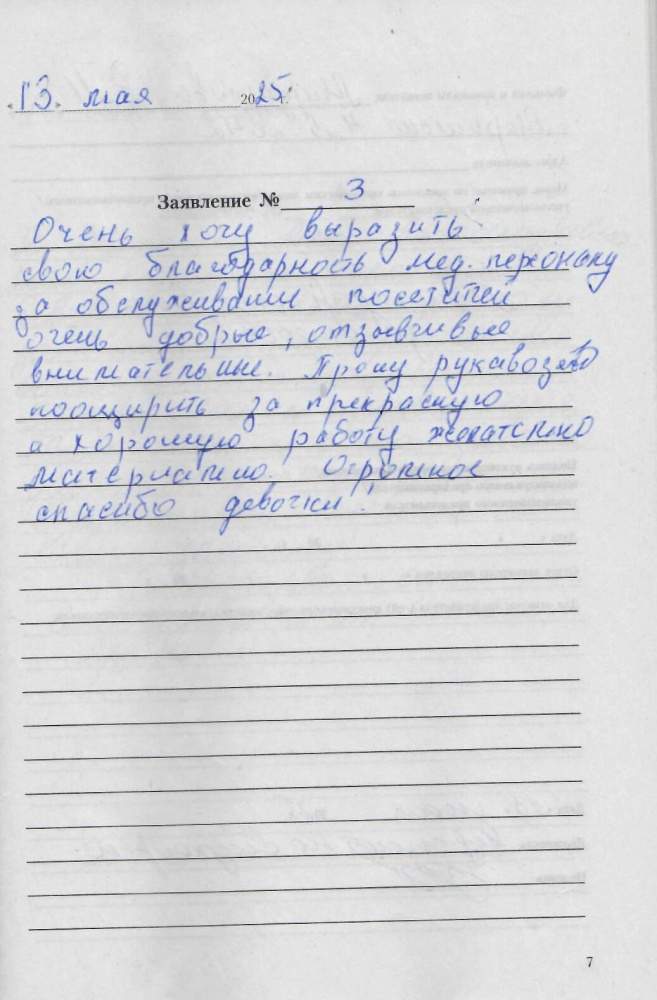 13. мая 2025 г.
Заявление № 3
Очень хочу выразить
свою благодарность мед. персоналу
за обслуживание посетителей
очень добрые, отзывчивые
внимательные. Прошу руководство
поощрить за прекрасную
и хорошую работу желательно
материально. Огромное
спасибо девочки!
7